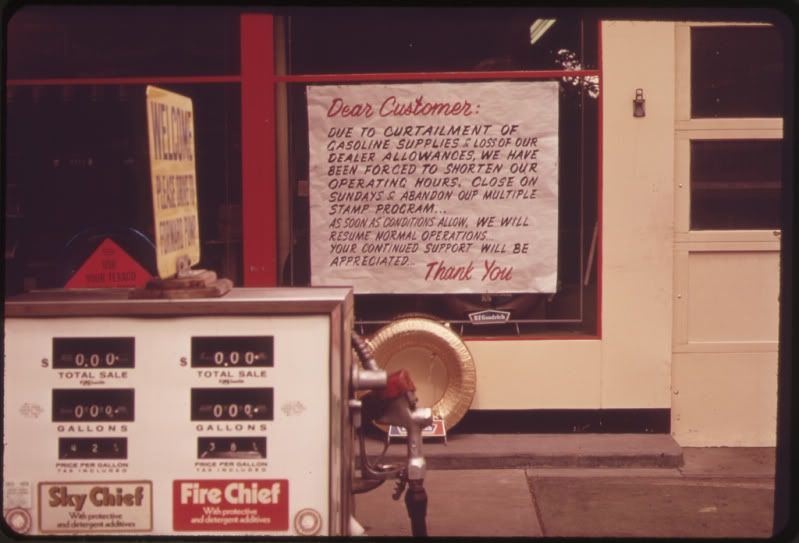 Dear Customer:
DUE TO CURTAILMENT OF
GASOLINE SUPPLIES & LOSS OF OUR
DEALER ALLOWANCES, WE HAVE
BEEN FORCED TO SHORTEN OUR
OPERATING HOURS, CLOSE ON
SUNDAYS & ABANDON OUR MULTIPLE
STAMP PROGRAM...
AS SOON AS CONDITIONS ALLOW, WE WILL
RESUME NORMAL OPERATIONS...
YOUR CONTINUED SUPPORT WILL BE
APPRECIATED...
Thank You
WELCOME
PLEASE
FORWARD
USE
YOUR TEXACO
B.F.Goodrich
$ 0.00 $ 0.00
TOTAL SALE TOTAL SALE
000 000
GALLONS GALLONS
PRICE PER GALLON PRICE PER GALLON
TAX INCLUDED TAX INCLUDED
Sky Chief Fire Chief
With protective With protective
and detergent additives and detergent additives